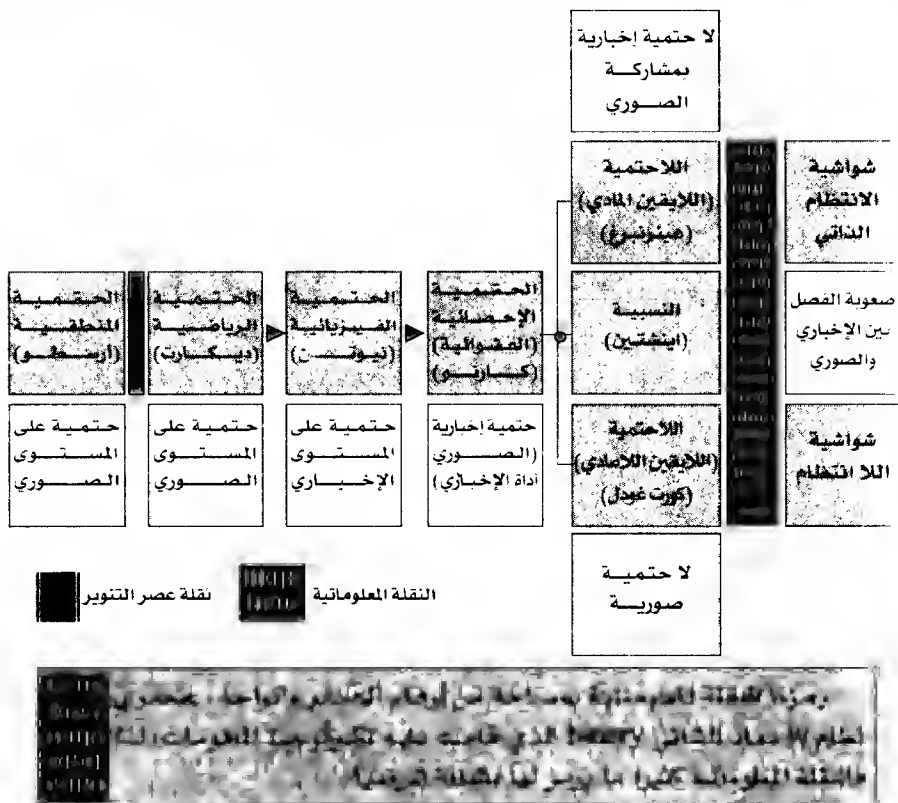 لا حتمية إخبارية
بمشاركة
الصوري
اللاحتمية
(اللايقين المادي)
(هينزنبرغ)
شواشية
الانتظام
الذاتي
الحتمية
المنطقية
(أرسطو)
الحتمية
الرياضية
(ديكارت)
الحتمية
الفيزيائية
(نيوتن)
الحتمية
الإحصائية
(العشوائية)
(كارنو)
النسبية
(اينشتين)
صعوبة الفصل
بين الإخباري
والصوري
حتمية على
المستوى
الصوري
حتمية على
المستوى
الصوري
حتمية على
المستوى
الإخباري
حتمية إخبارية
(الصوري
أداة الإخباري)
اللاحتمية
(اللايقين اللامادي)
(كورت غودل)
شواشية
اللا انتظام
لا حتمية
صورية
نقلة عصر التنوير
النقلة المعلوماتية